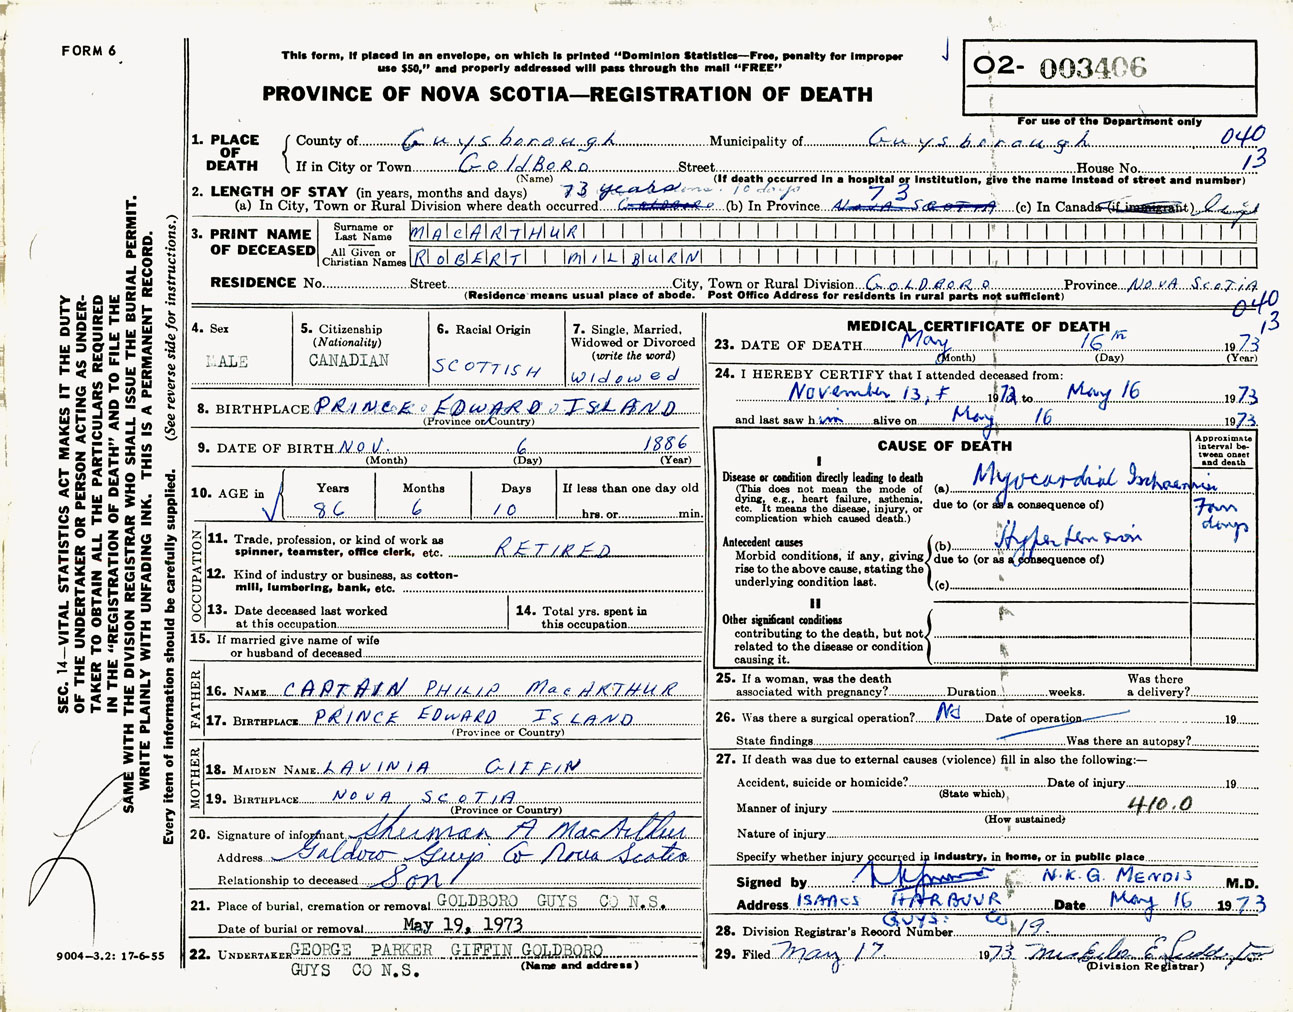 FORM 6
This form, if placed in an envelope, on which is printed "Dominion Statistics—Free, penalty for improper
use $50," and properly addressed will pass through the mail "FREE"
PROVINCE OF NOVA SCOTIA—REGISTRATION OF DEATH
O2- 003406
For use of the Department only
1. PLACE OF DEATH County of Guysborough Municipality of Guysborough 040
If in City or Town GOLDBORO Street House No. 13
(Name) (If death occurred in a hospital or institution, give the name instead of street and number)
2. LENGTH OF STAY (in years, months and days) 73 years 10 days 73
(a) In City, Town or Rural Division where death occurred GOLDBORO (b) In Province NOVA SCOTIA (c) In Canada (if immigrant)
3. PRINT NAME OF DECEASED
Surname or Last Name MACARTHUR
All Given or Christian Names ROBERT MILBURN
RESIDENCE No. Street City, Town or Rural Division GOLDBORO Province NOVA SCOTIA
(Residence means usual place of abode. Post Office Address for residents in rural parts not sufficient)
040
13
4. Sex
MALE
5. Citizenship
(Nationality)
CANADIAN
6. Racial Origin
SCOTTISH
7. Single, Married,
Widowed or Divorced
(write the word)
Widowed
8. BIRTHPLACE PRINCE EDWARD ISLAND
(Province or Country)
9. DATE OF BIRTH NOV. 6 1886
(Month) (Day) (Year)
10. AGE in Years Months Days If less than one day old
86 6 10 hrs. or min.
OCCUPATION
11. Trade, profession, or kind of work as
spinner, teamster, office clerk, etc. RETIRED
12. Kind of industry or business, as cotton-
mill, lumbering, bank, etc.
13. Date deceased last worked
at this occupation
14. Total yrs. spent in
this occupation
15. If married give name of wife
or husband of deceased
FATHER
16. NAME CAPTAIN PHILIP MacARTHUR
17. BIRTHPLACE PRINCE EDWARD ISLAND
(Province or Country)
MOTHER
18. MAIDEN NAME LAVINIA GIFFIN
19. BIRTHPLACE NOVA SCOTIA
(Province or Country)
20. Signature of informant Sherman A MacArthur
Address Guys Co Nova Scotia
Relationship to deceased Son
21. Place of burial, cremation or removal GOLDBORO GUYS CO N.S.
Date of burial or removal May 19, 1973
22. UNDERTAKER GEORGE PARKER GIFFIN GOLDBORO
GUYS CO N.S. (Name and address)
MEDICAL CERTIFICATE OF DEATH
23. DATE OF DEATH May 16th 1973
(Month) (Day) (Year)
24. I HEREBY CERTIFY that I attended deceased from:
November 13, 1972 to May 16 1973
and last saw him alive on May 16 1973.
CAUSE OF DEATH
Approximate
interval be-
tween onset
and death
I
Disease or condition directly leading to death
(This does not mean the mode of
dying, e.g., heart failure, asthenia,
etc. It means the disease, injury, or
complication which caused death.)
(a) Myocardial Ischaemia
due to (or as a consequence of)
Four
days
Antecedent causes
Morbid conditions, if any, giving
rise to the above cause, stating the
underlying condition last.
(b) Hypertension
due to (or as a consequence of)
(c)
II
Other significant conditions
contributing to the death, but not
related to the disease or condition
causing it.
25. If a woman, was the death
associated with pregnancy? Duration weeks. Was there
a delivery?
26. Was there a surgical operation? No Date of operation 19
State findings Was there an autopsy?
27. If death was due to external causes (violence) fill in also the following:—
Accident, suicide or homicide? Date of injury 19
(State which)
Manner of injury 410.0
(How sustained)
Nature of injury
Specify whether injury occurred in industry, in home, or in public place
Signed by N.K.G. MENDIS M.D.
Address ISAACS HARBOUR Date May 16 1973
GUYS: CO
28. Division Registrar's Record Number 19.
29. Filed May 17 1973
(Division Registrar)
SEC. 14—VITAL STATISTICS ACT MAKES IT THE DUTY
OF THE UNDERTAKER OR PERSON ACTING AS UNDER-
TAKER TO OBTAIN ALL THE PARTICULARS REQUIRED
IN THE "REGISTRATION OF DEATH" AND TO FILE THE
SAME WITH THE DIVISION REGISTRAR WHO SHALL ISSUE THE BURIAL PERMIT.
WRITE PLAINLY WITH UNFADING INK. THIS IS A PERMANENT RECORD.
Every item of information should be carefully supplied. (See reverse side for instructions.)
9004—3.2: 17-6-55